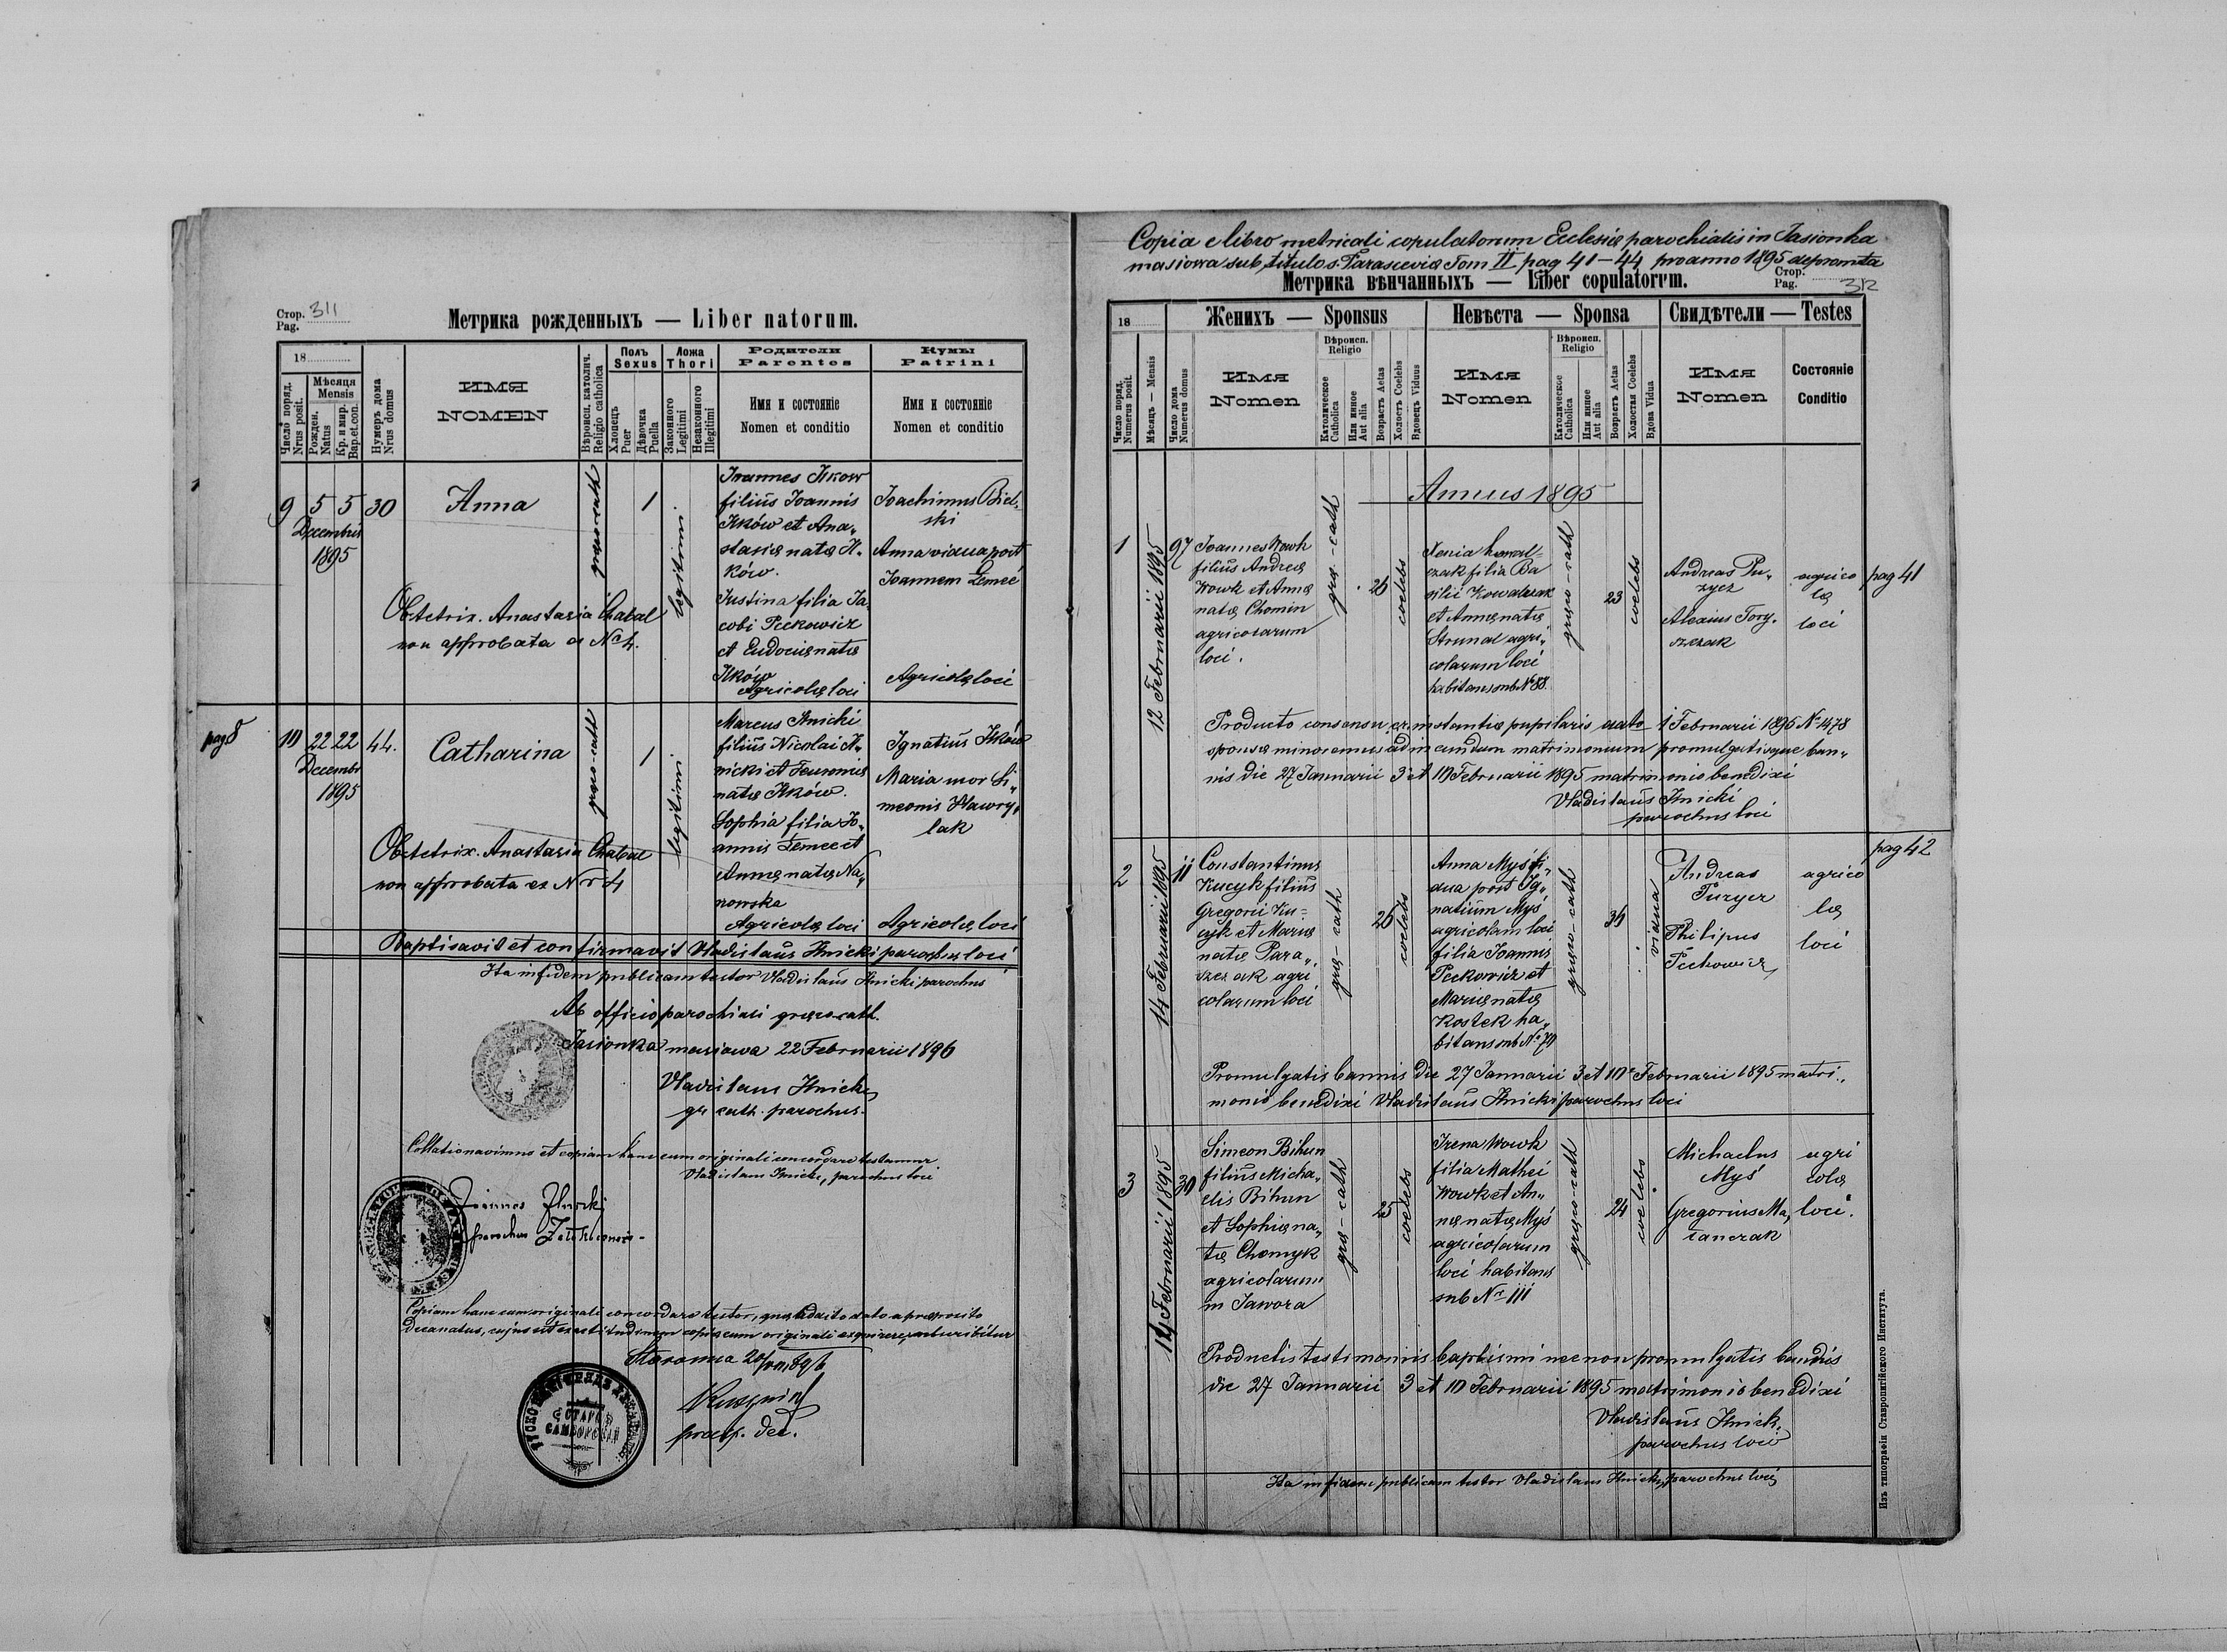 Стор. 311
Pag.
Метрика рожденныхъ — Liber natorum.
18
Число поряд.
Nrus posit.
Мѣсяця
Mensis
Рожден.
Natus
Кр. и мир.
Bap. et. con.
Нумеръ дома
Nrus domus
ИМЯ
NOMEN
Вѣроисп. католич.
Religio catholica
Полъ
Sexus
Хлопецъ
Puer
Дѣвочка
Puella
Ложа
Thori
Законного
Legitimi
Незаконного
Illegitimi
Родители
Parentes
Имя и состоянiе
Nomen et conditio
Кумы
Patrini
Имя и состоянiе
Nomen et conditio
9 5 5 30 Anna
Decembris
1895
graeco-cath
1
legitimi
Joannes Ilkow
filius Joannis
Ilków et Ana„
stasiæ natæ Il„
ków.
Justina filia Ja„
cobi Peckowicz
et Eudociæ natæ
Ilków
Agricolæ loci
Joachimus Biel„
ski
Anna vidua post
Joannem Zemeć
Agricolæ loci
Obstetrix. Anastasia Chabal
non approbata ex Nr 4.
pag 8
10 22 22 44. Catharina
Decembr
1895
graeco-cath
1
legitimi
Marcus Ilnicki
filius Nicolai Il„
nicki et
natæ Ilków.
Sophia filia Jo„
annis Zemec et
Annæ natæ Na„
nowska
Agricolæ loci
Ignatius Ilków
Maria uxor Si„
meonis Hawry„
lak
Agricolæ loci
Obstetrix. Anastasia Chabal
non approbata ex Nr 4
Baptisavit et confirmavit Vladislaus Ilnicki parochus loci
Ita in fidem publicam testor Vladislaus Ilnicki parochus
Ab officio parochiali græco cath.
Jasionka masiowa 22 Februarii 1896
Vladislaus Ilnicki
gr cath. parochus.
Collationavimus et copiam hanc cum originali concordare testamur
Vladislaus Ilnicki, parochus loci
Joannes
parochus
Copiam hanc cum originali concordare testor,
Decanatus,
præp. dec.
Copia e libro metricali copulatorum Ecclesiæ parochialis in Jasionka
masiowa sub titulo s. Parasceviæ Tom II pag 41–44 pro anno 1895 depromta
Метрика вѣнчанныхъ — Liber copulatorum.
Стор. 312
Pag.
18
Женихъ — Sponsus
Невѣста — Sponsa
Свидѣтели — Testes
Число поряд.
Numerus posit.
Мѣсяцъ — Mensis
Число дома
Numerus domus
Имя
Nomen
Вѣроисп.
Religio
Католическое
Catholica
Или иное
Aut alia
Возрастъ Aetas
Холостъ Coelebs
Вдовецъ Viduus
Имя
Nomen
Вѣроисп.
Religio
Католическое
Catholica
Или иное
Aut alia
Возрастъ Aetas
Холостая Coelebs
Вдова Vidua
Имя
Nomen
Состоянiе
Conditio
Annus 1895
1
12 Februarii 1895
97
Joannes Wowk
filius Andreæ
Wowk et Annæ
natæ Chomin
agricolarum
loci.
græ.-cath
26
coelebs
Xenia Kowal=
czak filia Ba
silii Kowalczak
et Annæ natæ
Strunal agri„
colarum loci
habitans sub Nr 88.
græco-cath
23
coelebs
Andreas Pu„
zycz
Alexius Tory„
szczak
agrico
læ
loci
pag 41
Producto consensu ex instantiæ pupilaris dato 1 Februarii 1895 Nr 1478
sponsæ minorennis ad ineundum matrimonium promulgatisque ban„
nis die 27 Januarii 3 et 10 Februarii 1895 matrimonio benedixi
Vladislaus Ilnicki
parochus loci
pag 42
2
14 Februarii 1895
11
Constantinus
Kucyk filius
Gregorii Ku=
cyk et Mariæ
natæ Para„
szczak agri
colarum loci
græ-cath
26
coelebs
Anna Myś vi„
dua post Ig„
natium Myś
agricolam loci
filia Joannis
Peckowicz et
Mariæ natæ
Kostek ha„
bitans sub Nr 70
græco-cath
vidua
Andreas
Puzycz
Philipus
Peckowicz
agrico
læ
loci
Promulgatis bannis die 27 Januarii 3 et 10 Februarii 1895 matri„
monio benedixi Vladislaus Ilnicki parochus loci
3
14 Februarii 1895
30
Simeon Bihun
filius Micha„
elis Bihun
et Sophiæ na„
tæ Chomyk
agricolarum
in Jawora
græ-cath
25
coelebs
Irena Wowk
filia Mathei
Wowk et An„
næ natæ Myś
agricolarum
loci habitans
sub Nr 111
græco-cath
24
coelebs
Michaelus
Myś
Gregorius Ma„
tanczak
agri
colæ
loci.
Productis testimoniis baptismi necnon promulgatis bannis
die 27 Januarii 3 et 10 Februarii 1895 matrimonio benedixi
Vladislaus Ilnicki
parochus loci
Ita in fidem publicam testor Vladislaus Ilnicki, parochus loci
Изъ типографiи Ставропигiйского Института.